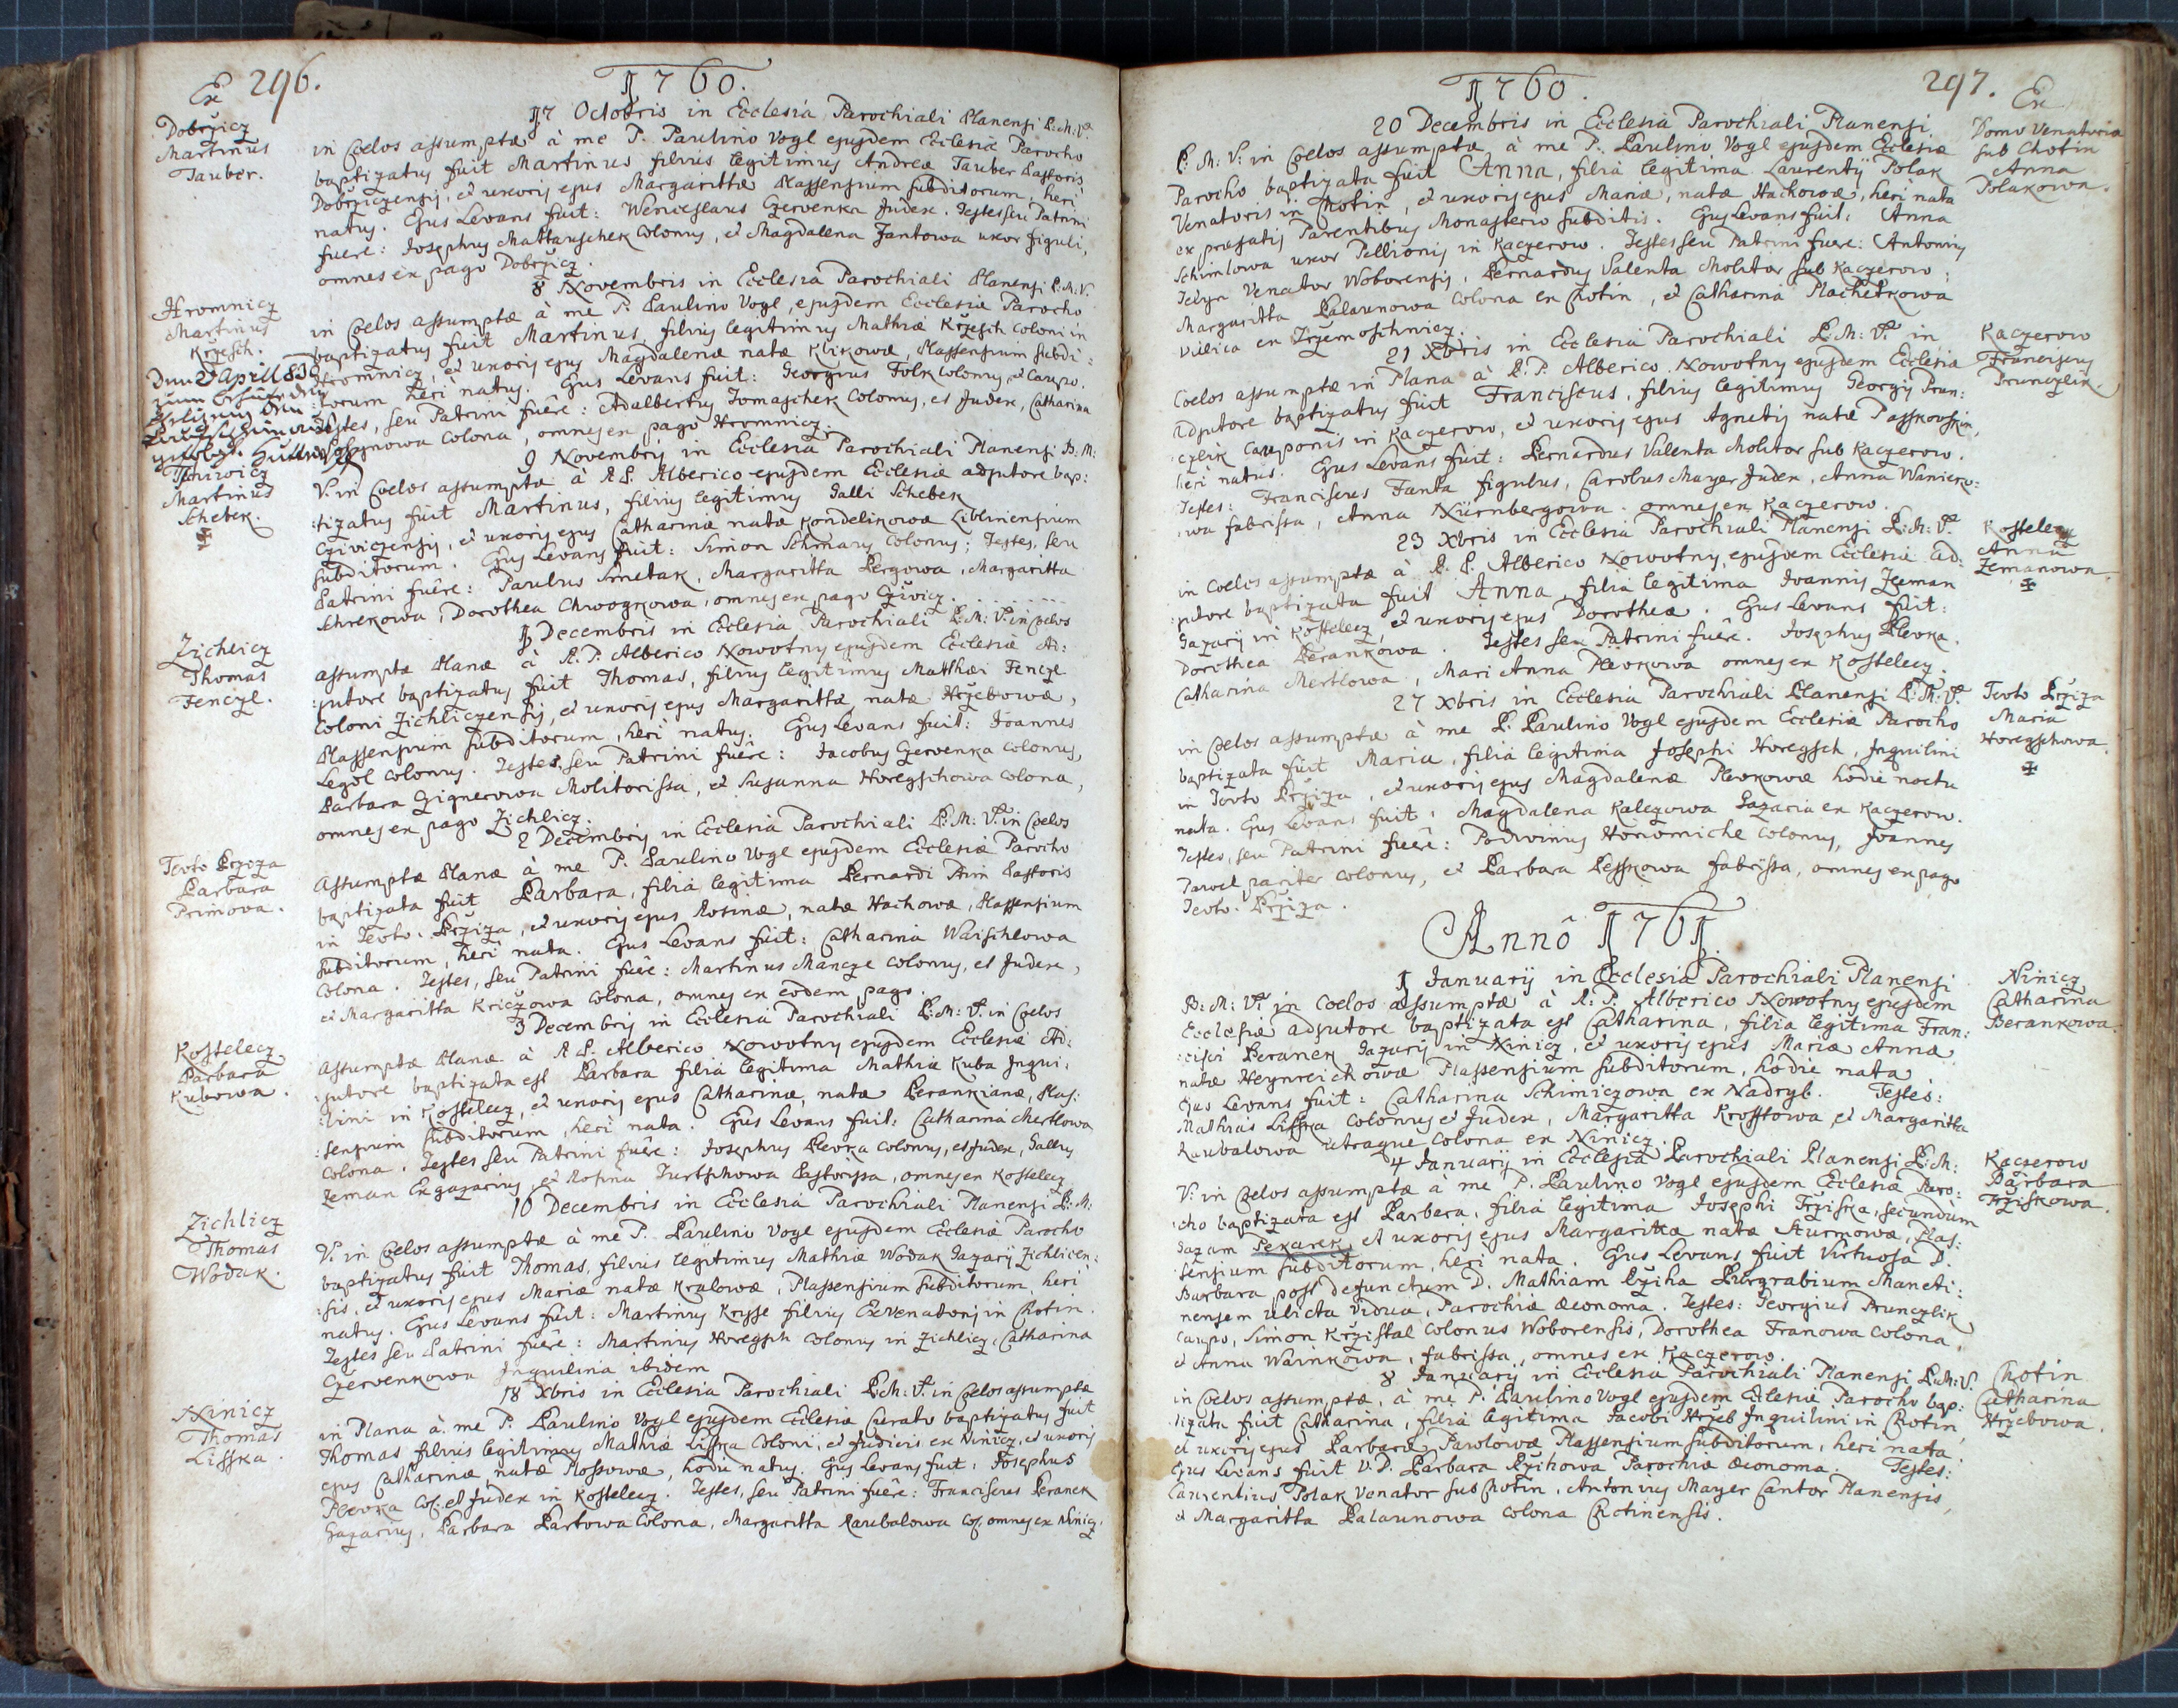 Ex 296.
1760.
Dobržicz
Martinus
Tauber.
17 Octobris in Ecclesia Parochiali Planensi B: M: V.
in Coelos assumptæ à me P. Paulino Vogl ejusdem Ecclesiæ Parocho
baptizatus fuit Martinus filius legitimus Andreæ Tauber Pastoris
Dobržiczensis, et uxoris ejus Margarittæ Plassensium subditorum, heri
natus. Ejus Levans fuit: Wenceslaus Czervenka Judex. Testes seu Patrini
fuere: Josephus Mattauschek Colonus, et Magdalena Jantowa uxor figuli,
omnes ex pago Dobržicz.
Hromnicz
Martinus
Kržesch.
8 Novembris in Ecclesia Parochiali Planensi B: M: V.
in Coelos assumptæ à me P. Paulino Vogl, ejusdem Ecclesiæ Parocho
baptizatus fuit Martinus, filius legitimus Mathiæ Kržesch Coloni in
Hromnicz, et uxoris ejus Magdalenæ natæ Klikowæ, Plassensium subdi:
:torum heri natus. Ejus Levans fuit: Georgius Folk Colonus, et Caupo.
Testes, seu Patrini fuêre: Adalbertus Tomaschek Colonus, et Judex, Catharina
colona, omnes ex pago Hromnicz.
Martinus
Schebek.
9 Novembris in Ecclesia Parochiali Planensi B: M:
V. in Coelos assumptæ à R P. Alberico ejusdem Ecclesiæ adjutore bap:
:tizatus fuit Martinus, filius legitimus Galli Schebek
Cziviczensis, et uxoris ejus Catharinæ natæ Kondelikowæ Libliniensium
subditorum. Ejus Levans fuit: Simon Schmaus Colonus; Testes, seu
Patrini fuêre: Paulus Smetak, Margaritta Bergowa, Margaritta
Schrekowa, Dorothea Chwogkowa, omnes ex pago Czivicz.
Zichlicz
Thomas
Fenczl.
1 Decembris in Ecclesia Parochiali B: M: V. in Coelos
assumptæ Planæ à R. P. Alberico Nowotny ejusdem Ecclesiæ Ad:
:jutore baptizatus fuit Thomas, filius legitimus Matthæi Fenczl
Coloni Zichliczensis, et uxoris ejus Margarittæ, natæ Hržebowæ,
Plassensium subditorum, heri natus. Ejus Levans fuit: Joannes
Legol colonus. Testes, seu Patrini fuêre: Jacobus Czervenka Colonus,
Barbara Czignerowa Molitorissa, et Susanna Horegschowa Colona,
omnes ex pago Zichlicz.
Tevto Bržiza
Barbara
Primova.
2 Decembris in Ecclesia Parochiali B: M: V. in Coelos
Assumptæ Planæ à me P. Paulino Vogl ejusdem Ecclesiæ Parocho
baptizata fuit Barbara, filia legitima Bernardi Prim Pastoris
in Tevto. Bržiza, et uxoris ejus Rosinæ, natæ Hachowæ, Plassensium
subditorum, heri nata. Ejus Levans fuit: Catharina Waischlowa
Colona. Testes, seu Patrini fuêre: Martinus Mancze colonus, et Judex,
et Margaritta Kriczowa Colona, omnes ex eodem pago.
Kosstelecz
Barbara
Kubowa.
3 Decembris in Ecclesia Parochiali B: M: V. in Coelos
Assumptæ Planæ à R P. Alberico Nowotny ejusdem Ecclesiæ Ad:
:jutore baptizata est Barbara filia legitima Mathiæ Kuba Inqui:
:lini in Kosstelecz, et uxoris ejus Catharinæ, natæ Berankianæ, Plas:
:sensium subditorum, heri nata. Ejus Levans fuit: Catharina Mertlowa
Colona. Testes seu Patrini fuêre: Josephus Plevka Colonus, et Judex, Gallus
Zeman Exgazarius, et Rosina Turtschowa Pastorissa, omnes ex Kosstelecz.
Zichlicz
Thomas
Wodak.
10 Decembris in Ecclesia Parochiali Planensi B: M:
V. in Coelos assumptæ à me P. Paulino Vogl ejusdem Ecclesiæ Parocho
baptizatus fuit Thomas, filius legitimus Mathiæ Wodak Gazarij Zichlicen:
:sis, et uxoris ejus Mariæ natæ Kralowæ, Plassensium subditorum, heri
natus. Ejus Levans fuit: Martinus Krysse filius Exvenatoris in Chotin.
Testes seu Patrini fuêre: Martinus Horegsch Colonus in Zichlicz, Catharina
Czervenkowa Inquilina ibidem
Ninicz
Thomas
Lisska.
18 Xbris in Ecclesia Parochiali B: M: V. in Coelos assumptæ
in Plana à me P. Paulino Vogl ejusdem Ecclesiæ Curato baptizatus fuit
Thomas filius legitimus Mathiæ Lisska Coloni, et Judicis ex Ninicz, et uxoris
ejus Catharinæ, natæ Plossowæ, hodie natus. Ejus Levans fuit: Josephus
Plevka Col: et Judex in Kosstelecz. Testes, seu Patrini fuêre: Franciscus Beranek
Gazarius, Barbara Bartowa Colona, Margaritta Raubalowa Col. omnes ex Ninicz.
1760.
297. Ex
Domo Venatoria
sub Chotin
Anna
Polakowa.
20 Decembris in Ecclesia Parochiali Planensi
B. M. V. in Coelos assumptæ à me P. Paulino Vogl ejusdem Ecclesiæ
Parocho baptizata fuit Anna, filia legitima Laurentij Polak
Venatoris in Chotin, et uxoris ejus Mariæ, natæ Hachowæ, heri nata
ex præfatis Parentibus Monasterio subditis. Ejus Levans fuit: Anna
Schimlowa uxor Pellionis in Kaczerow. Testes seu Patrini fuêre: Antonius
Venator Woborensis, Bernardus Valenta Molitor sub Kaczerow,
Margaritta Palaunowa Colona ex Chotin, et Catharina Machetkowa
ex Tržemoschnicz.
Kaczerow
Franciscus
Prunczlik.
21 Xbris in Ecclesia Parochiali B: M: V. in
Coelos assumptæ in Plana à R. P. Alberico Nowotny ejusdem Ecclesiæ
Adjutore baptizatus fuit Franciscus, filius legitimus Georgij Prun:
:czlik Cauponis in Kaczerow, et uxoris ejus Agnetis natæ
heri natus. Ejus Levans fuit: Bernardus Valenta Molitor sub Kaczerow.
Testes: Franciscus Fanta figulus, Carolus Mayer Judex, Anna Wanicko:
:wa fabrissa, Anna Nürnbergowa. omnes ex Kaczerow.
Kosstelecz
Anna
Zemanowa
23 Xbris in Ecclesia Parochiali Planensi B: M: V.
in Coelos assumptæ à R. P. Alberico Nowotny, ejusdem Ecclesiæ ad:
:jutore baptizata fuit Anna, filia legitima Joannis Zeman
Gazarij in Kosstelecz, et uxoris ejus Dorotheæ. Ejus Levans fuit:
Dorothea Berankowa. Testes seu Patrini fuêre. Josephus Plevka.
Catharina Mertlowa, Mari Anna Plevkowa omnes ex Kosstelecz.
Tevto Bržiza
Maria
Horegschowa.
27 Xbris in Ecclesia Parochiali Planensi B: M: V.
in Coelos assumptæ à me P. Paulino Vogl ejusdem Ecclesiæ Parocho
baptizata fuit Maria, filia legitima Josephi Horegsch, Inquilini
in Tevto Bržiza, et uxoris ejus Magdalenæ Plevkowæ hodie noctu
nata. Ejus Levans fuit: Magdalena Kalezowa Gazaria ex Kaczerow.
Testes, seu Patrini fuêre: Podwinus Honomichl Colonus, Joannes
Pawel pariter Colonus, et Barbara Pesskowa fabrissa, omnes ex pago
Tevto. Bržiza.
Annô 1761.
Ninicz
Catharina
Berankowa.
1 Januarij in Ecclesia Parochiali Planensi
B: M: V. in Coelos assumptæ à R: P. Alberico Nowotny ejusdem
Ecclesiæ adjutore baptizata est Catharina, filia legitima Fran:
:cisci Beranek Gazarij in Ninicz, et uxoris ejus Mariæ Annæ
natæ Heynreichowæ Plassensium subditorum, hodie nata
Ejus Levans fuit: Catharina Schimiczowa ex Nadryb. Testes:
Mathias Lisska Colonus et Judex, Margaritta Krosstowa, et Margaritta
Raubalowa utraque Colona ex Ninicz.
Kaczerow
Barbara
Tržiskowa.
4 Januarij in Ecclesia Parochiali Planensi B: M:
V. in Coelos assumptæ à me P. Paulino Vogl ejusdem Ecclesiæ Paro:
:cho baptizata est Barbara, filia legitima Josephi Tržiska, secundum
Gazam Pekarek, et uxoris ejus Margarittæ natæ Sturmowæ, Plas:
:sensium subditorum, heri nata. Ejus Levans fuit Virtuosa D.
Barbara post defunctum D. Mathiam Ržiha Burgrabium Maneti:
nensem relicta vidua, Parochiæ Œconoma. Testes: Georgius Prunczlik
Caupo, Simon Kržistal Colonus Woborensis, Dorothea Franowa Colona,
et Anna Wainkowa, fabrissa, omnes ex Kaczerow.
Chotin
Catharina
Hržebowa.
8 Januarij in Ecclesia Parochiali Planensi B: M: V.
in Coelos assumptæ, à me P. Paulino Vogl ejusdem Eclesiæ Parocho bap:
:tizata fuit Catharina, filia legitima Jacobi Hržeb Inquilini in Chotin,
et uxoris ejus Barbaræ Pawlowæ Plassensium subditorum, heri nata
Ejus Levans fuit V. D. Barbara Ržihowa Parochiæ Œconoma. Testes:
Laurentius Polak Venator sub Chotin, Antonius Mayer Cantor Planensis,
et Margaritta Palaunowa Colona Chotinensis.